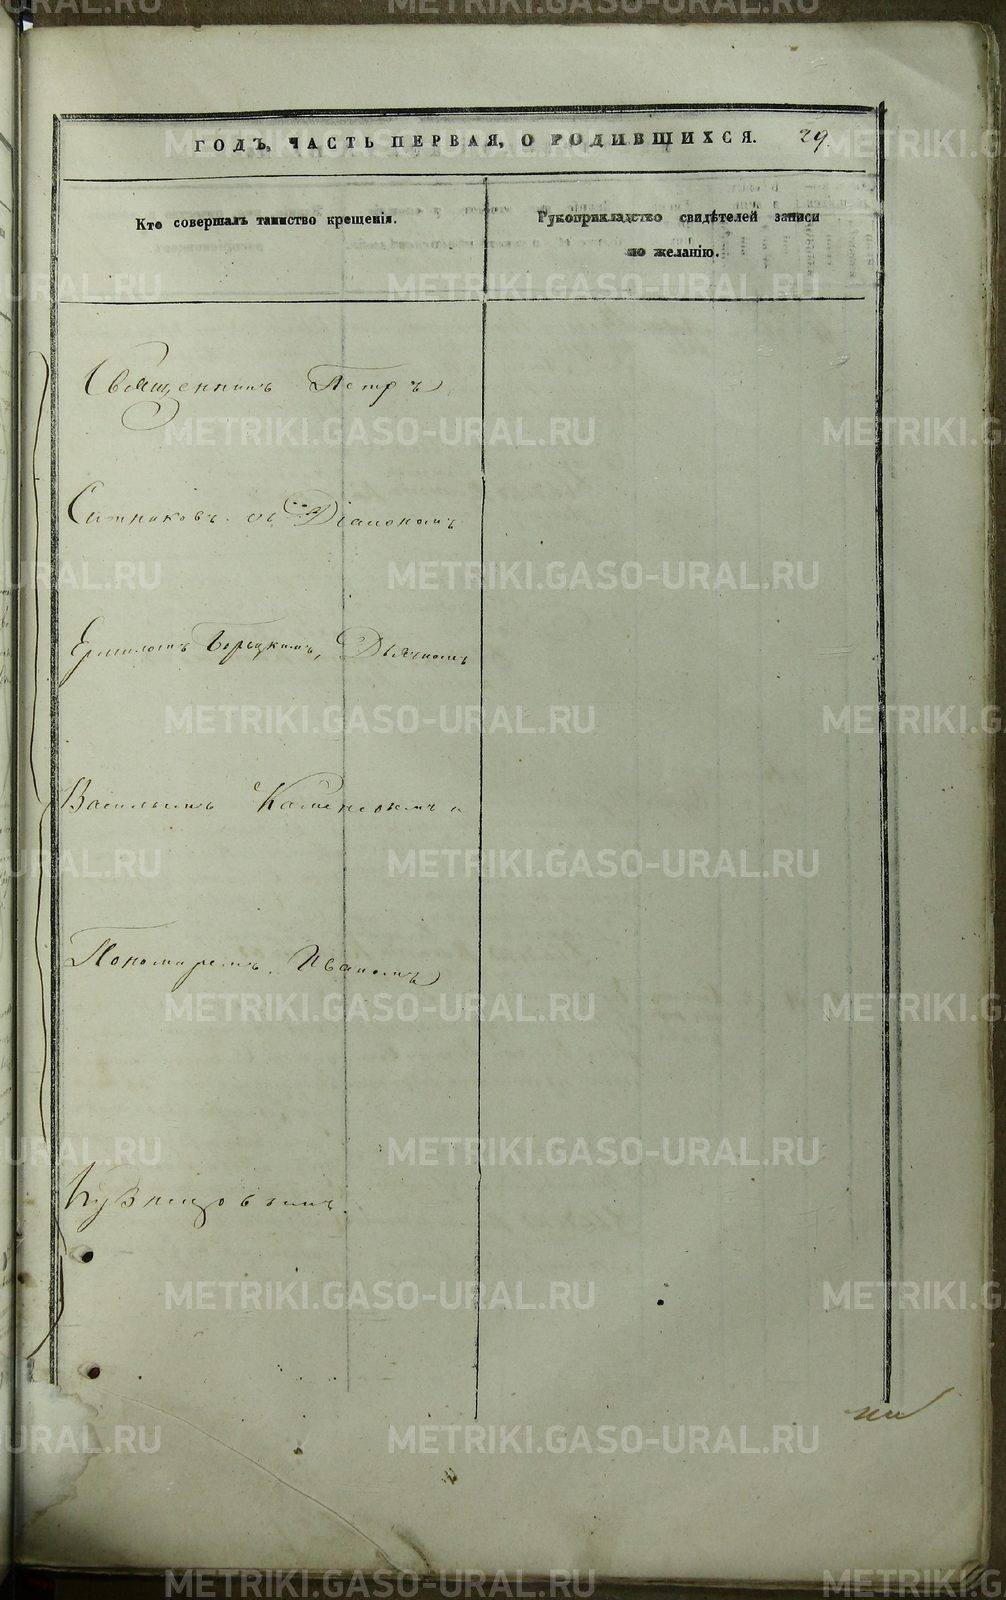 ГОДЪ, ЧАСТЬ ПЕРВАЯ, О РОДИВШИХСЯ. 29.
Кто совершалъ таинство крещенія.
Рукоприкладство свидѣтелей записи
по желанію.
Священникъ Петръ
Ситниковъ съ Діакономъ
Ермиломъ Дьячкомъ
Васильемъ Каменскимъ и
Пономаремъ Иваномъ
Кузнецовымъ.
METRIKI.GASO-URAL.RU